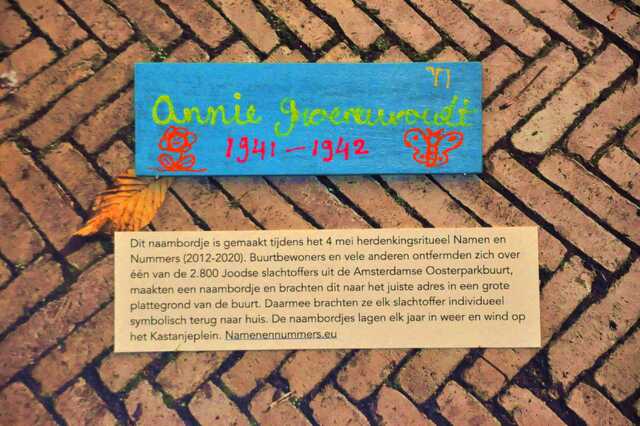 Annie Groenewoudt
1941 – 1942
Dit naambordje is gemaakt tijdens het 4 mei herdenkingsritueel Namen en
Nummers (2012-2020). Buurtbewoners en vele anderen ontfermden zich over
één van de 2.800 Joodse slachtoffers uit de Amsterdamse Oosterparkbuurt,
maakten een naambordje en brachten dit naar het juiste adres in een grote
plattegrond van de buurt. Daarmee brachten ze elk slachtoffer individueel
symbolisch terug naar huis. De naambordjes lagen elk jaar in weer en wind op
het Kastanjeplein. Namenennummers.eu